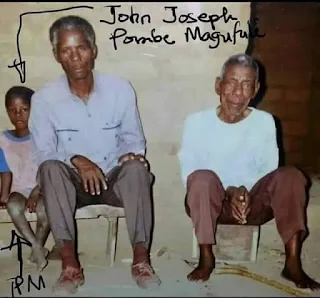 John Joseph
Pombe Magufuli
PM